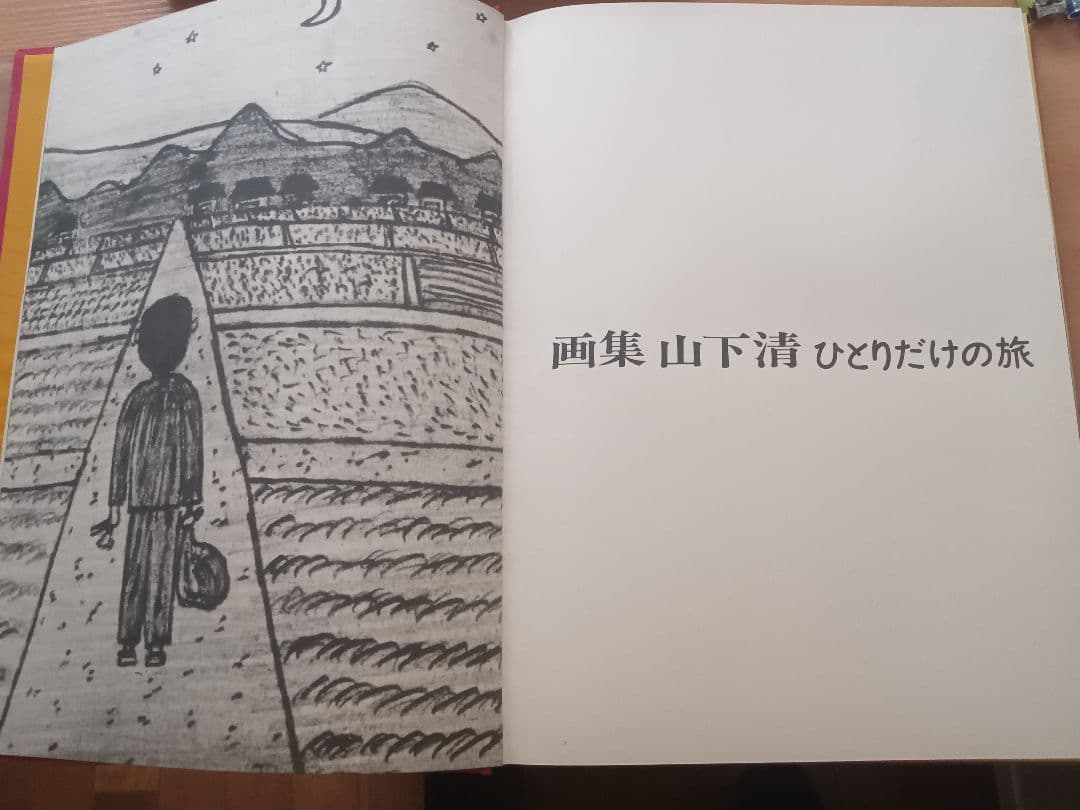 画集 山下清 ひとりだけの旅